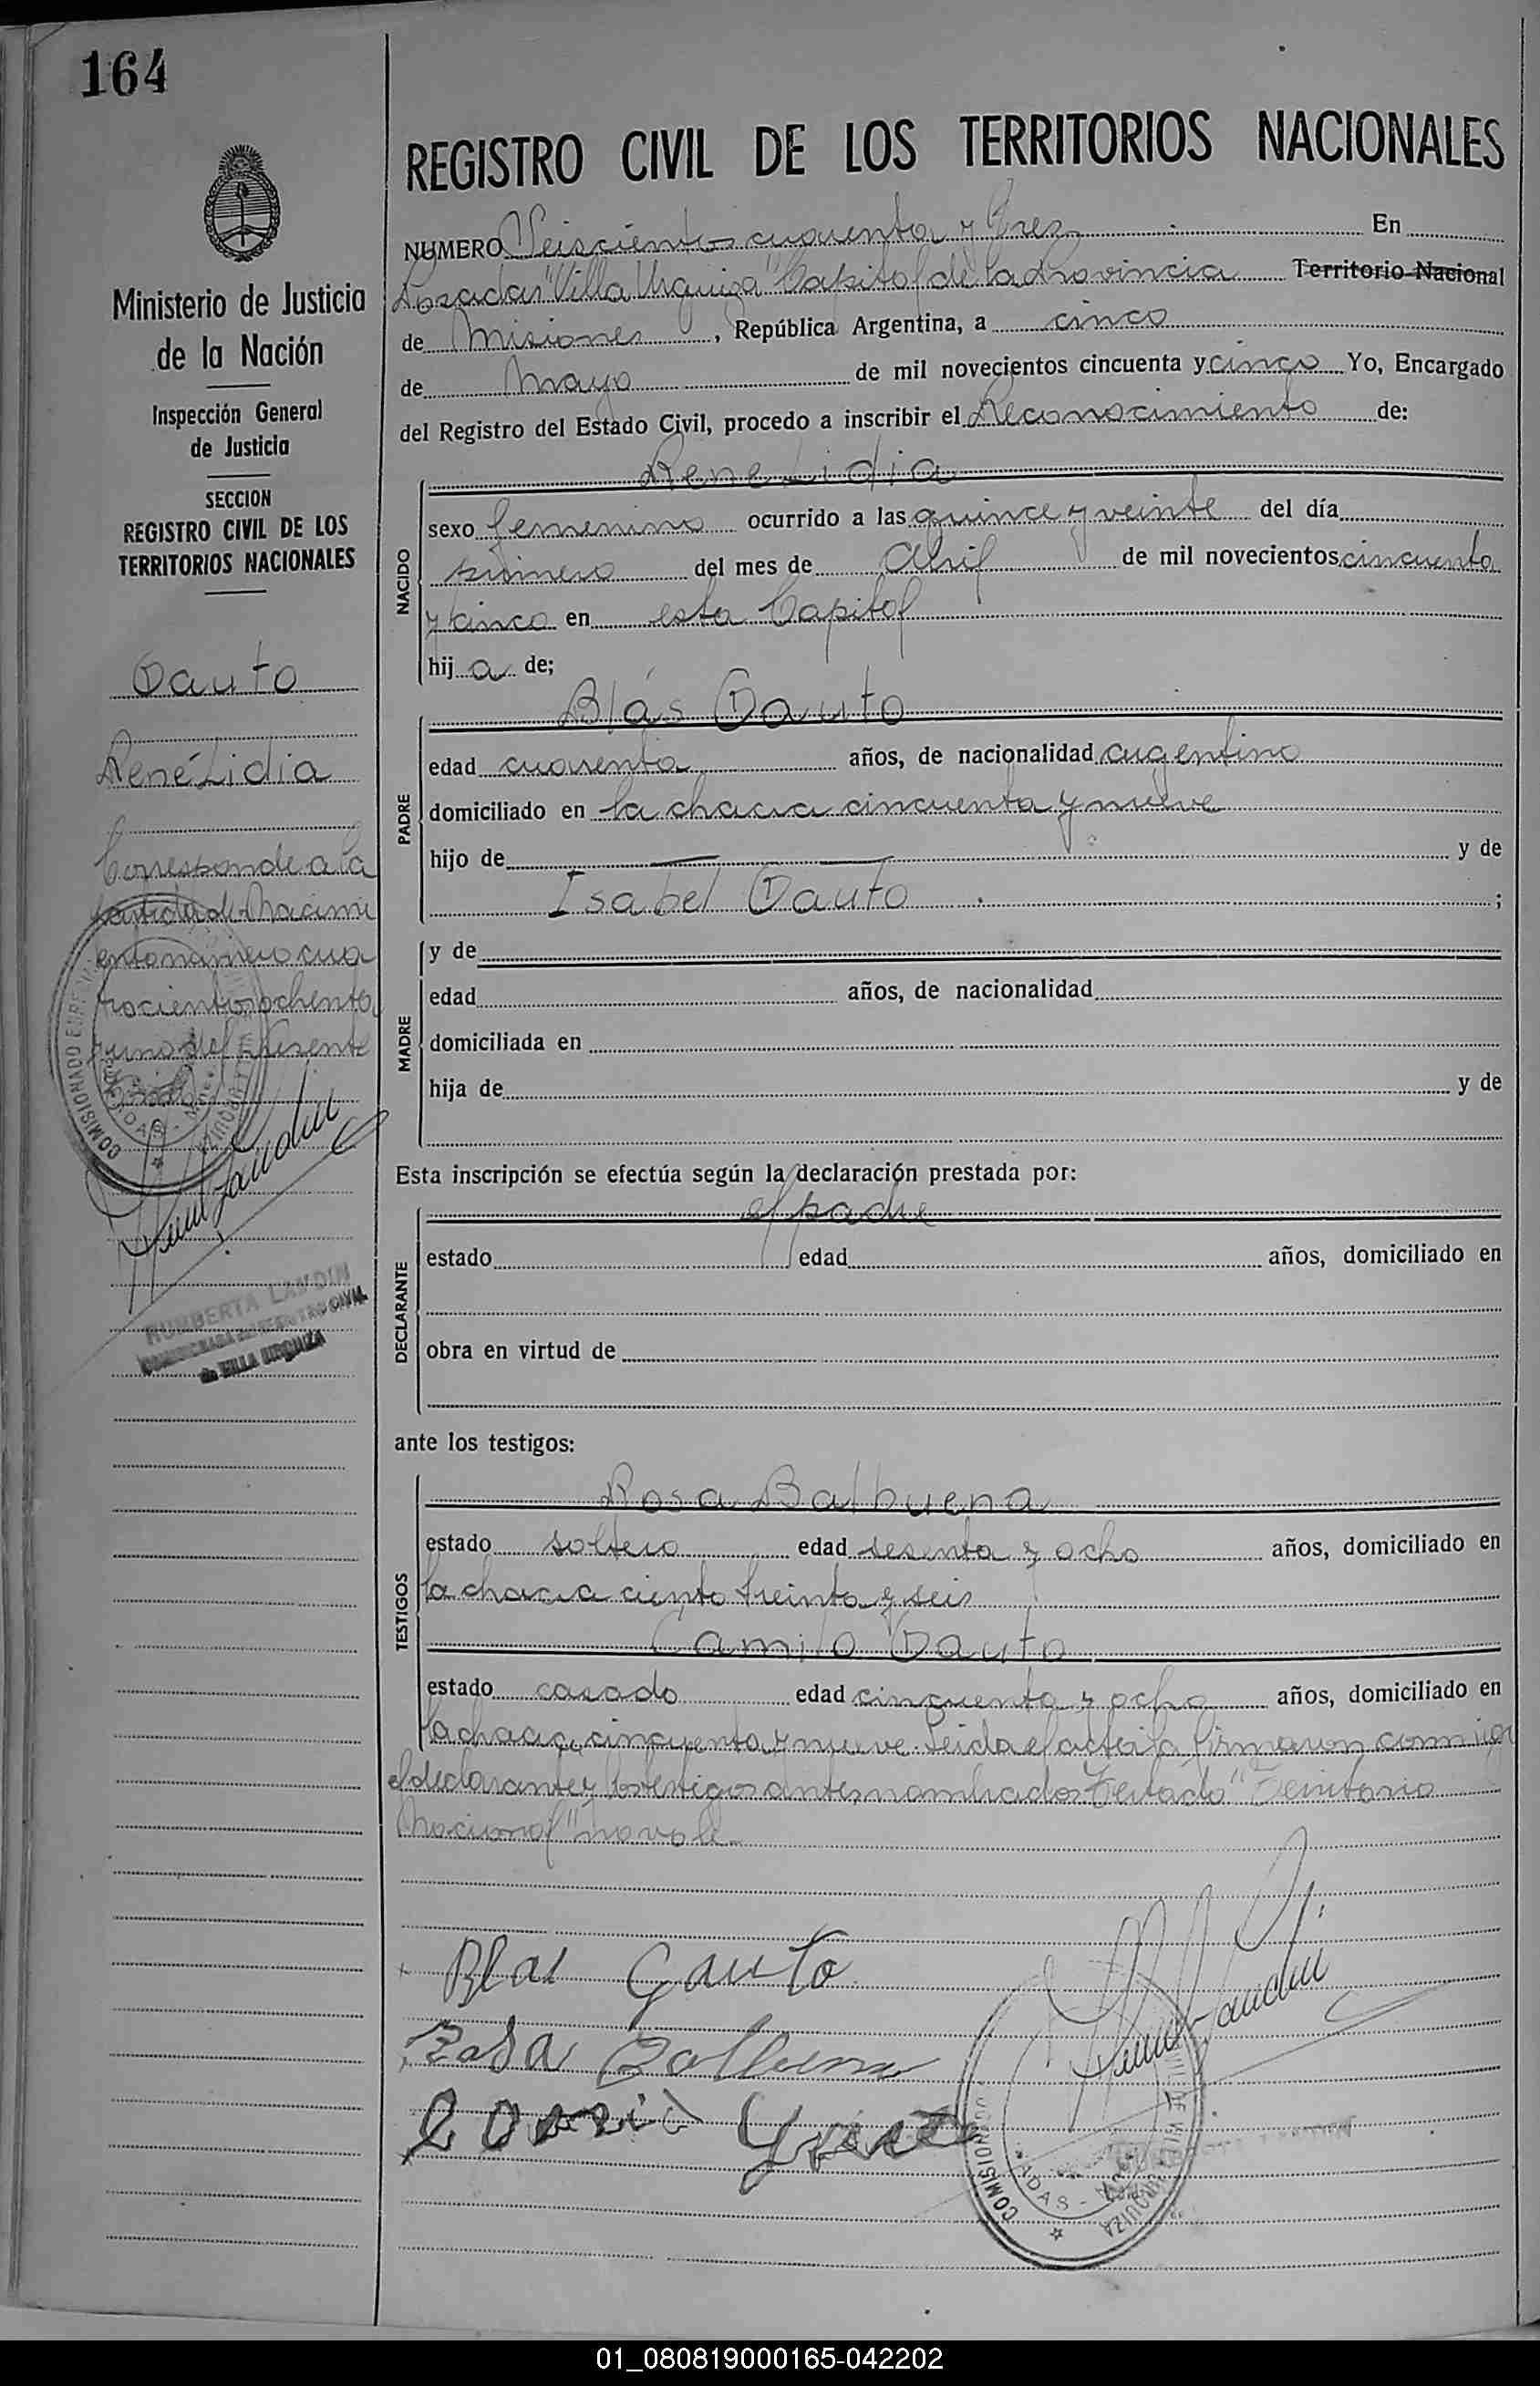 164
REGISTRO CIVIL DE LOS TERRITORIOS NACIONALES
NUMERO Seiscientos cuarenta y Tres En
Posadas "Villa Urquiza" Capital de la Provincia Territorio Nacional
de Misiones, República Argentina, a cinco
de Mayo de mil novecientos cincuenta y cinco Yo, Encargado
del Registro del Estado Civil, procedo a inscribir el Reconocimiento de:
Ministerio de Justicia
de la Nación
Inspección General
de Justicia
SECCION
REGISTRO CIVIL DE LOS
TERRITORIOS NACIONALES
Gauto
René Lidia
Corresponde a la
partida de Nacimi
ento número cua
trocientos ochenta
y uno del Presente
COMISIONADO
HUMBERTA LANDIN
de VILLA URQUIZA
NACIDO
Rene Lidia
sexo femenino ocurrido a las quince y veinte del día
primero del mes de Abril de mil novecientos cincuenta
y cinco en esta Capital
hija de;
PADRE
Blás Gauto
edad cuarenta años, de nacionalidad argentino
domiciliado en la chacra cincuenta y nueve
hijo de — — y de
Isabel Gauto ;
MADRE
y de
edad años, de nacionalidad
domiciliada en
hija de y de
Esta inscripción se efectúa según la declaración prestada por:
DECLARANTE
el padre
estado edad años, domiciliado en
obra en virtud de
ante los testigos:
TESTIGOS
Rosa Balbuena
estado soltero edad sesenta y ocho años, domiciliado en
la chacra ciento treinta y seis
Camilo Gauto
estado casado edad cincuenta y ocho años, domiciliado en
la chacra cincuenta y nueve. Leida el acta la firmaron conmigo
el declarante y los testigos antes nombrados. Testado "Territorio
Nacional" no vale.
Blas Gauto
Rosa Balbuena
COMISIONADO
01_080819000165-042202